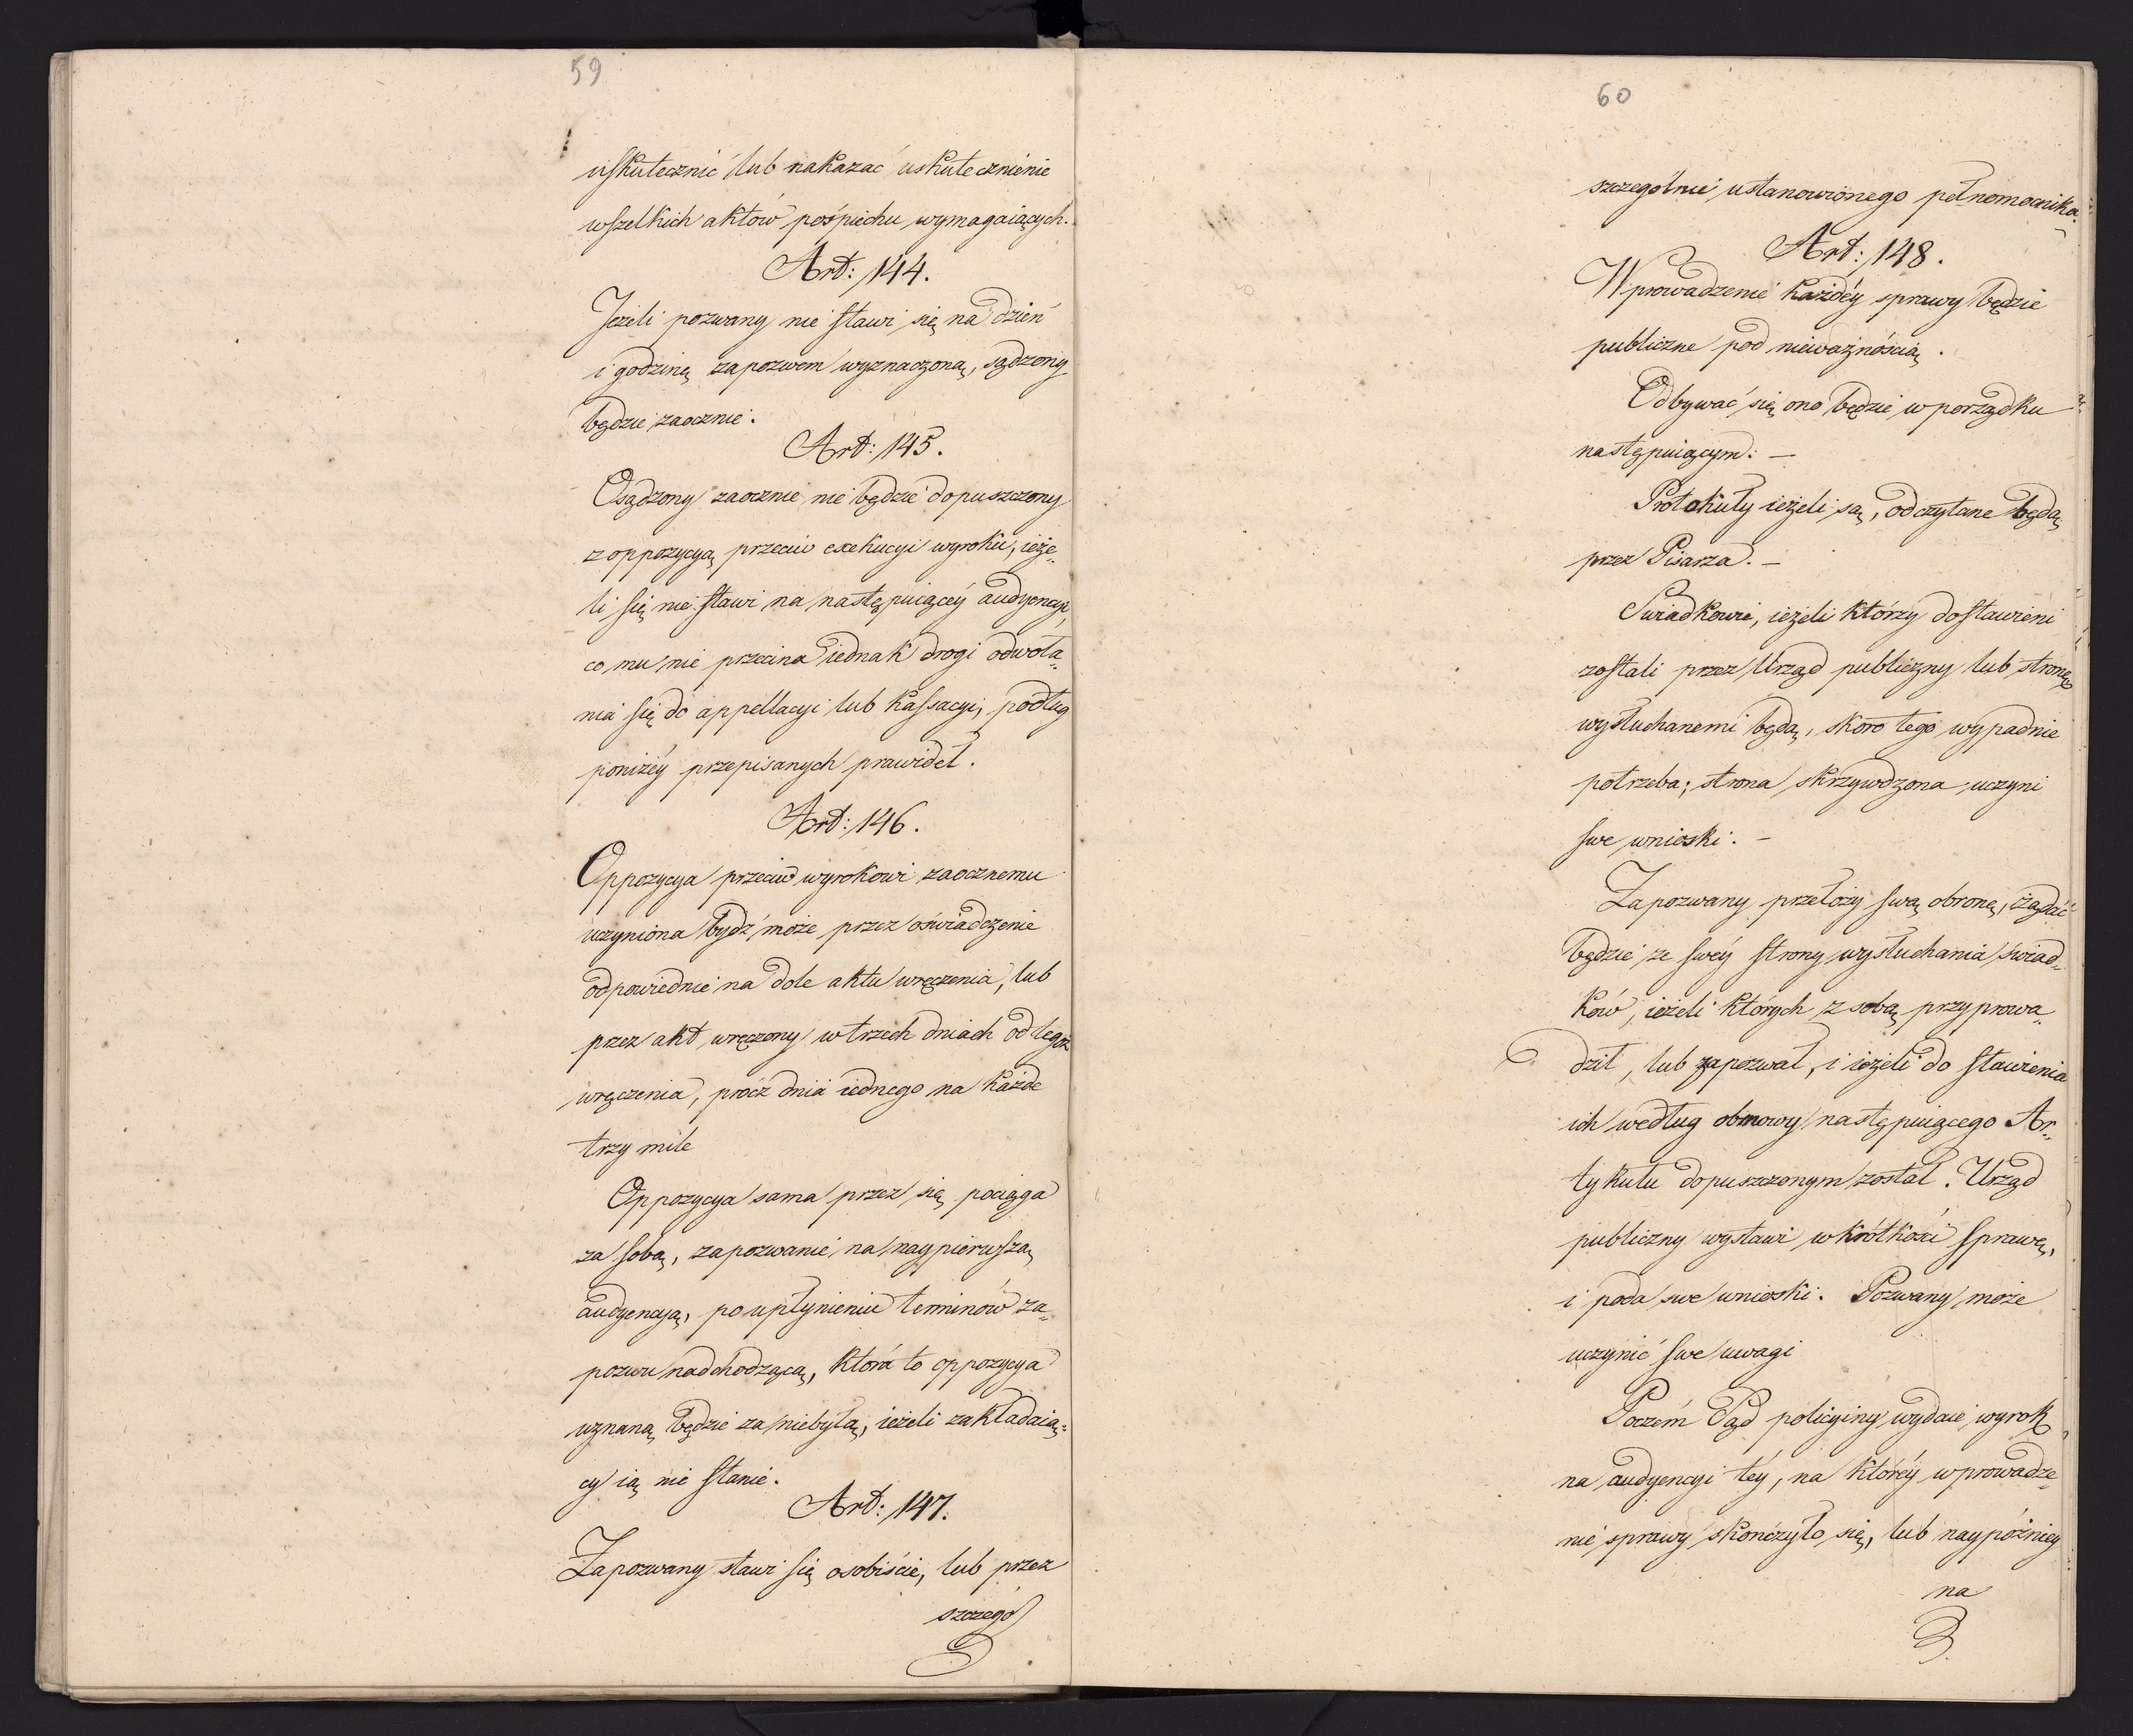 59
uskutecznić lub nakazać uskutecznienie
wszelkich aktów pośpiechu wymagaiących.
Art: 144.
Jeżeli pozwany nie stawi się na dzień
i godzinę zapozwem wyznaczoną, sądzony
będzie zaocznie.
Art: 145.
Osądzony zaocznie, nie będzie dopuszczony
z oppozycyą przeciw exekucyi wyroku, ieże„
li się nie stawi na następuiącéy audyencyi,
co mu nie przecina iednak drogi odwoła„
nia się do appellacyi lub kassacyi, podług
poniżéy przepisanych prawideł.
Art: 146.
Oppozycya przeciw wyrokowi zaocznemu
uczyniona bydź może przez oświadczenie
odpowiednie na dole aktu wręczenia, lub
przez akt wręczony w trzech dniach od tegoż
wręczenia, prócz dnia iednego na każde
trzy mile
Oppozycya sama przez się pociąga
za sobą, zapozwanie na naypierwszą
audyencyą, po upłynieniu terminów za„
pozwu nadchodzącą, która to oppozycya
uznaną będzie za niebyłą, ieżeli zakładaią„
cy ią nie stanie.
Art: 147.
Zapozwany stawi się osobiście, lub przez
szczegó
60
szczególnie ustanowionego pełnomocnika.
Art: 148.
Wprowadzenie każdéy sprawy będzie
publiczne pod nieważnością.
Odbywać się ono będzie w porządku
następuiącym: —
Protokuły ieżeli są, odczytane będą
przez Pisarza. —
Swiadkowie, ieżeli którzy dostawieni
zostali przez Urząd publiczny lub stronę
wysłuchanemi będą, skoro tego wypadnie
potrzeba; strona skrzywdzona uczyni
swe wnioski. —
Zapozwany przełoży swą obronę, żądać
będzie ze swéy strony wysłuchania świad„
ków, ieżeli których z sobą przyprowa„
dził, lub zapozwał, i ieżeli do stawienia
ich według obmowy następuiącego Ar„
tykułu dopuszczonym został. Urząd
publiczny wystawi w krótkości sprawę,
i poda swe wnioski. Pozwany może
uczynić swe uwagi
Poczém Sąd policyiny wydaie wyrok
na audyencyi téy, na któréy wprowadze„
nie sprawy skończyło się, lub naypóźniey
na